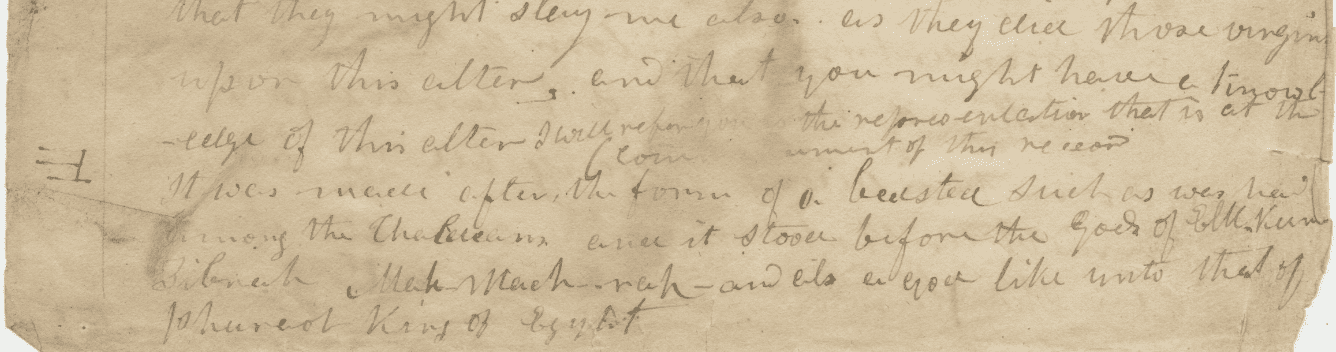 that they might slay me also. as they did those virgins
upon this alter, and that you might have a knowl-
-edge of this alter I will refer you to the representation that is at the
commencement of this record
It was made after the form of a beasted such as was had
among the Chaldeans and it stood before the Gods of Elk-Kener
Zibnah Mah-Mach-rah- and als a god like unto that of
pharaoh King of Egypt